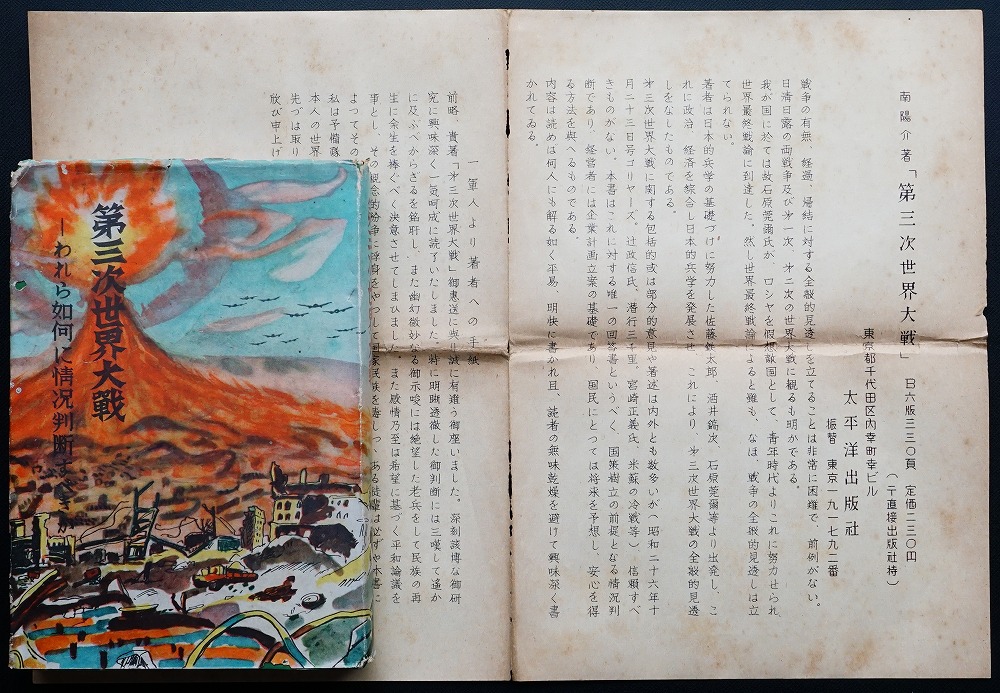 南陽介著「第三次世界大戦」 B六版三三〇頁 定価二三〇円
(〒直接出版社持)
東京都千代田区内幸町幸ビル
太平洋出版社
振替 東京一九一七九二番
戦争の有無、経過、帰結に対する全般的見透しを立てることは非常に困難で、前例がない。
日清日露の両戦争及び第一次、第二次の世界大戦に観るも明かである。
我が国に於ては故石原莞爾氏が、ロシヤを仮想敵国として、青年時代よりこれに努力せられ、
世界最終戦論に到達した。然し世界最終戦論によると雖も、なほ、戦争の全般的見透しは立
てられない。
著者は日本的兵学の基礎づけに努力した佐藤鉄太郎、酒井鎬次、石原莞爾等より出発し、こ
れに政治、経済を綜合し日本的兵学を発展させ、これにより、第三次世界大戦の全般的見透
しをなしたものである。
第三次世界大戦に関する包括的或は部分的意見や著述は内外とも数多いが(昭和二十六年十
月二十三日号コリヤーズ。辻政信氏、潜行三千里、宮崎正義氏、米蘇の冷戦等)信頼すべ
きものがない、本書はこれに対する唯一の回答書というべく、国策樹立の前提となる情況判
断であり、経営者には企業計画立案の基礎であり、国民にとつては将来を予想し、安心を得
る方法を与へるものである。
内容は読めば何人にも解る如く平易、明快に書かれ且、読者の無味乾燥を避けて興味深く書
かれてゐる。
一軍人より著者への手紙
前略、貴著「第三次世界大戦」御恵送に与り誠に有難う御座いました。深刻該博な御研
究に興味深く一気呵成に読了いたしました。特に明晰透徹した御判断には三嘆して遙か
に及ぶべからざるを銘肝し、また幽幻微妙なる御示唆には絶望した老兵をして民族の再
生に余生を捧ぐべく決意させてしまひました。また感情乃至は希望に基づく平和論議を
事とし、その観念的紛争に浮身をやつして国家民族を毒しつゝある徒輩は必ずや本書に
よつてその
私は予備
本人の世界
先づは取り
欣び申上げ
第三次世界大戰
―われら如何に情况判断すべきか